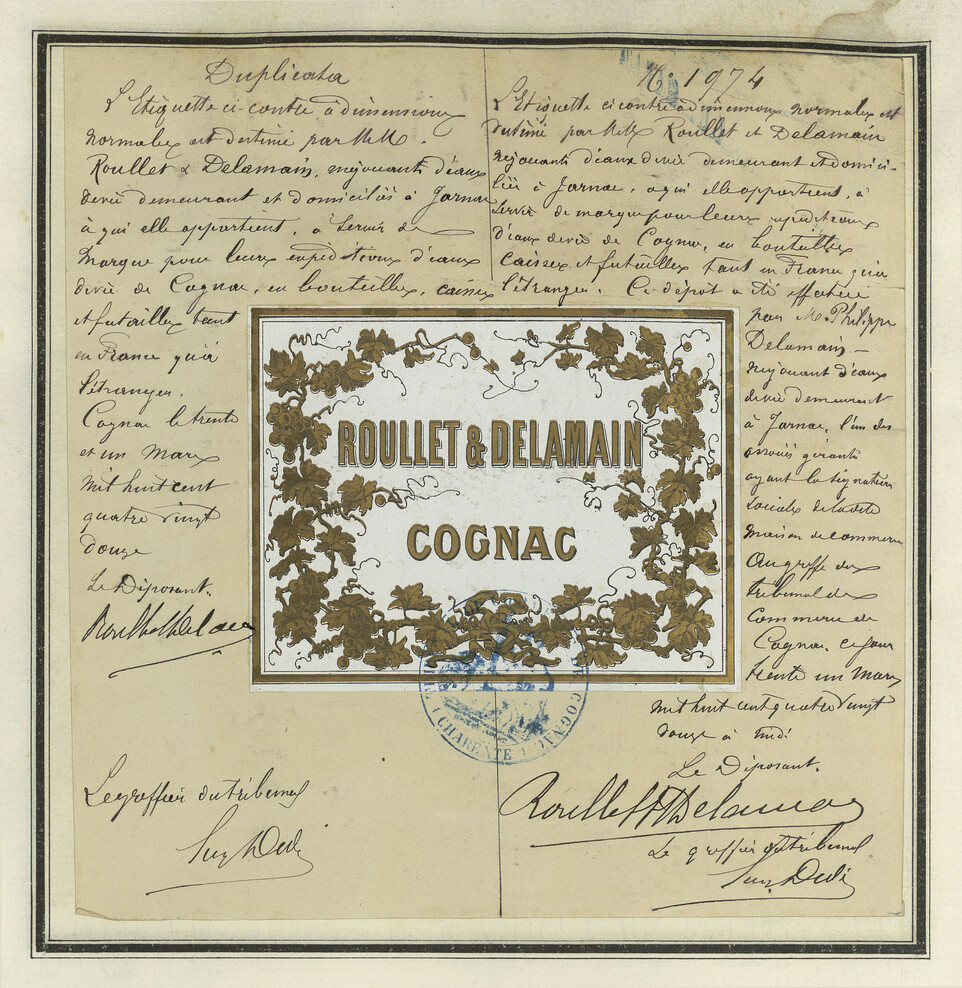 Duplicata
L'Etiquette ci contre à dimensions
normales est destiné par M.M.
Roullet & Delamain, négociants d'eaux
devie demeurant et domiciliés à Jarnac
à qui elle appartient, à servir de
marque pour leurs expéditions d'eaux
devie de Cognac, en bouteilles, caisses
et futailles tant
en France qu'à
l'étranger.
Cognac le trente
et un Mars
mil huit cent
quatre vingt
douze
Le Déposant.
Roullet & Delamain
Le greffier du tribunal
N° 1974
L'Etiquette ci contre à dimensions normales est
destiné par M.M. Roullet et Delamain
négociants d'eaux devie demeurant et domici-
liés à Jarnac, à qui elle appartient, à
servir de marque pour leurs expéditions
d'eaux devie de Cognac, en bouteilles
caisses et futailles tant en France qu'à
l'étranger. Ce dépôt a été effectué
par M. Philippe
Delamain
négociant d'eaux
devie demeurant
à Jarnac, l'un des
associés gérants
ayant la signature
sociale de ladite
maison de commerce
Au greffe du
tribunal de
Commerce de
Cognac, ce jour
trente un Mars
mil huit cent quatre vingt
douze à midi
Le Déposant.
Roullet & Delamain
Le greffier du tribunal
ROULLET & DELAMAIN
COGNAC
COGNAC
(CHARENTE)